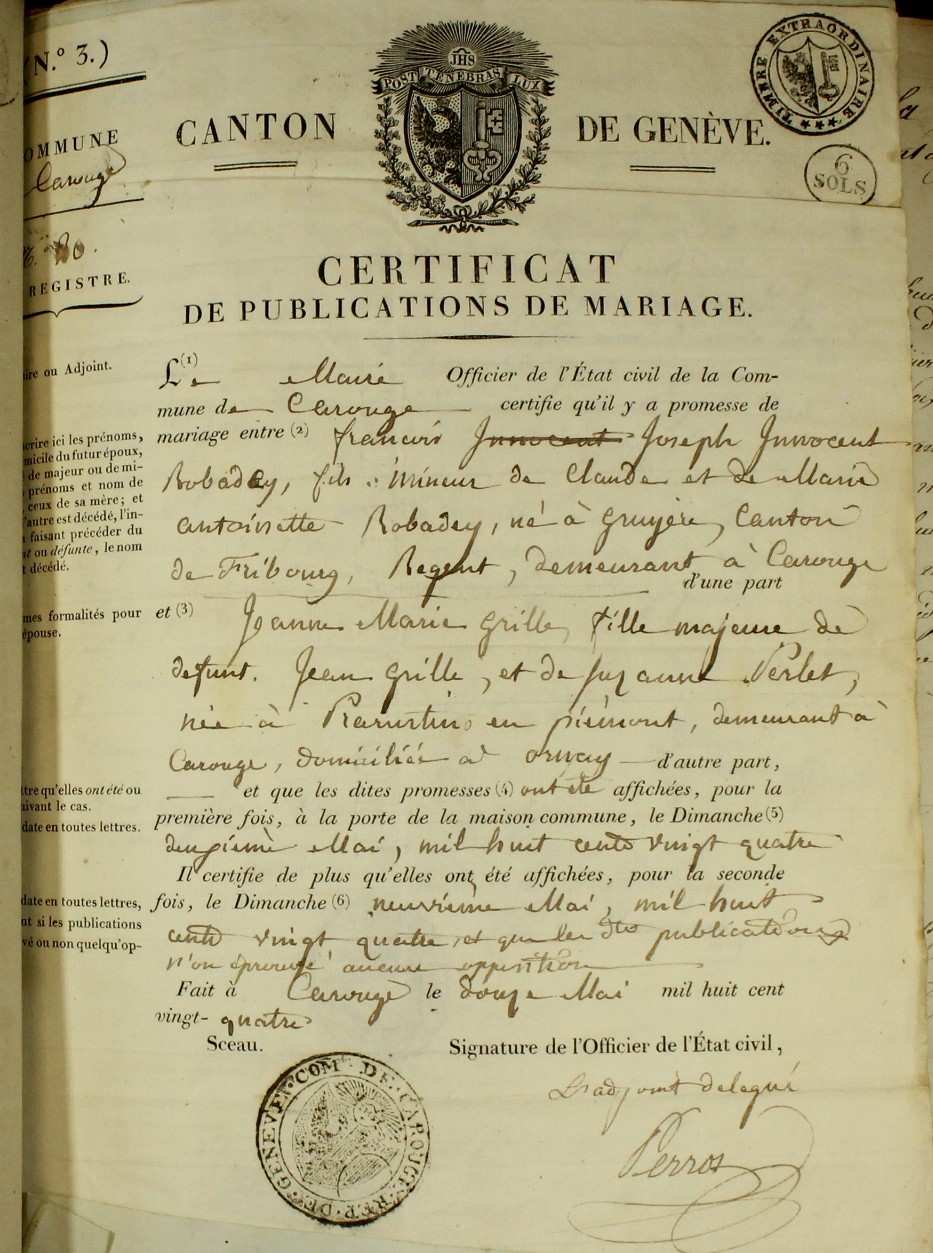 (N.º 3.)
OMMUNE
Carouge
REGISTRE.
JHS
POST TENEBRAS LUX
CANTON DE GENÈVE.
TIMBRE EXTRAORDINAIRE
6
SOLS
CERTIFICAT
DE PUBLICATIONS DE MARIAGE.
ire ou Adjoint.
crire ici les prénoms,
micile du futur époux,
de majeur ou de mi-
prénoms et nom de
ceux de sa mère; et
l'autre est décédé, l'in-
faisant précéder du
nt ou défunte, le nom
t décédé.
mes formalités pour
épouse.
tre qu'elles ont été ou
uivant le cas.
date en toutes lettres.
date en toutes lettres,
nt si les publications
vé ou non quelqu'op-
Le (1) Maire Officier de l'État civil de la Com-
mune de Carouge certifie qu'il y a promesse de
mariage entre (2) françois Innocent Joseph Innocent
Robadey, fils mineur de Claude et de Marie
antoinette Robadey, né à Gruyère, Canton
de Fribourg, Regent, demeurant à Carouge
d'une part
et (3) Jeanne Marie Grille, fille majeure de
defunt. Jean Grille, et de Suzanne Perlet,
née à Prarustin en piémont, demeurant à
Carouge, domiciliée à ornay d'autre part,
et que les dites promesses (4) ont été affichées, pour la
première fois, à la porte de la maison commune, le Dimanche (5)
deuxième Mai, mil huit cents vingt quatre
Il certifie de plus qu'elles ont été affichées, pour la seconde
fois, le Dimanche (6) neuvième Mai, mil huit
cents vingt quatre, et que les dtes publications
n'on éprouvé aucune opposition
Fait à Carouge le douze Mai mil huit cent
vingt-quatre
Sceau. Signature de l'Officier de l'État civil,
L'adjoint delegué
Perros
COM. DE CAROUGE REP. DE GENEVE